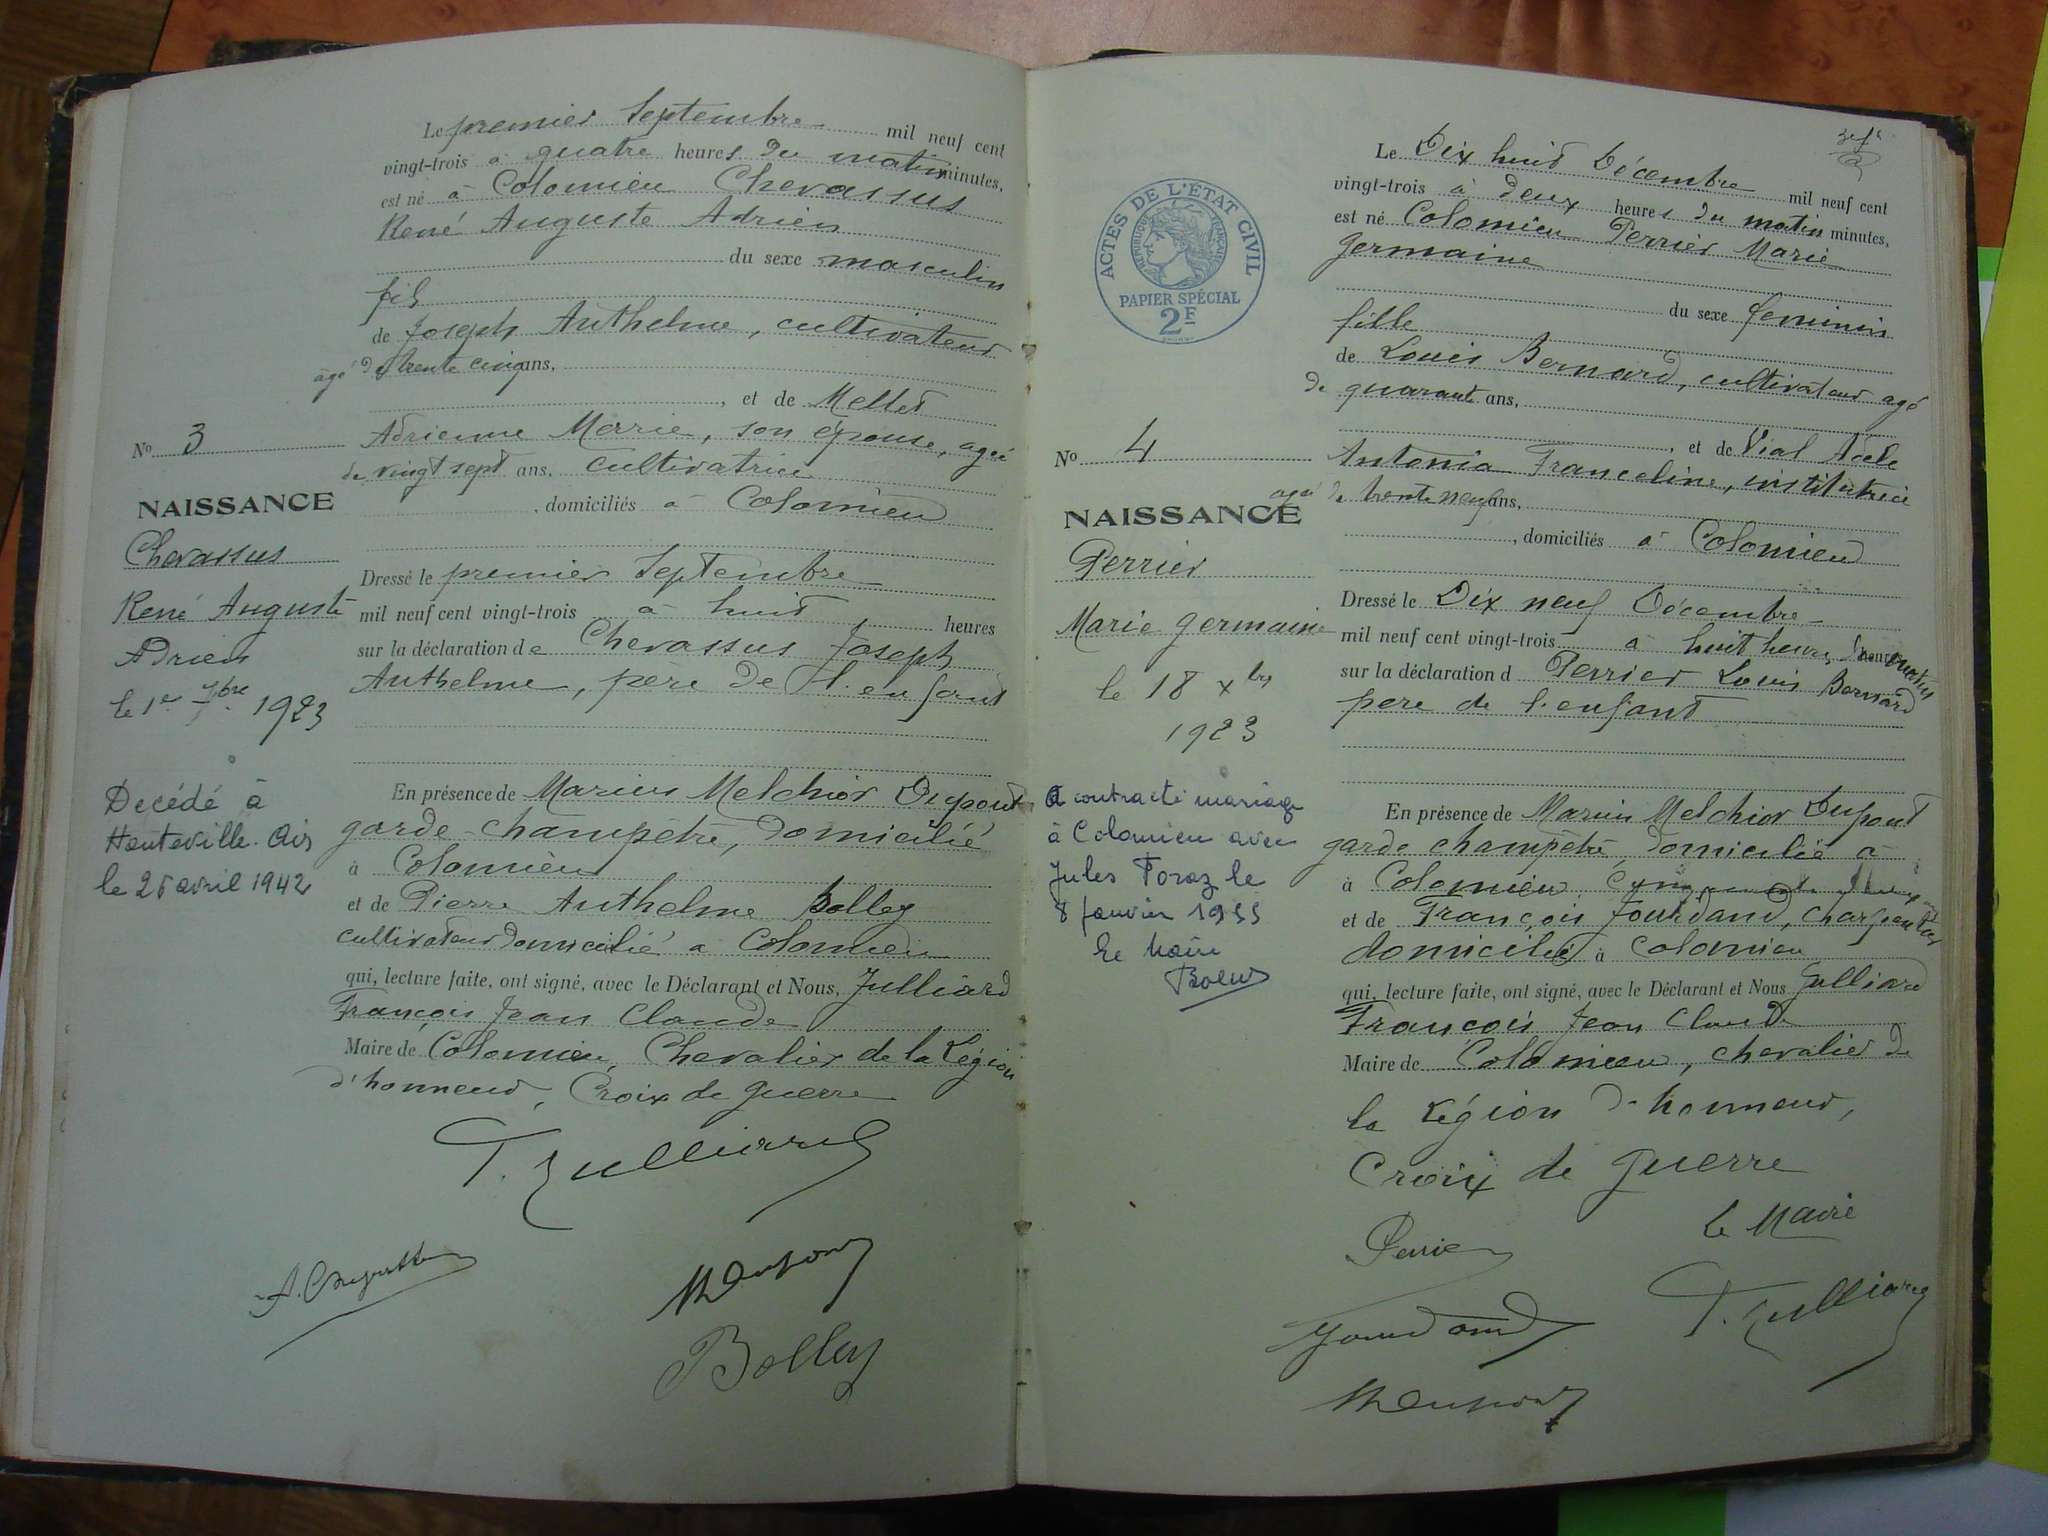 Le premier Septembre mil neuf cent
vingt-trois à quatre heures du matin minutes,
est né à Colomieu Chevassus
René Auguste Adrien
du sexe masculin
fils
de Joseph Anthelme, cultivateur
âgé de trente cinq ans,
, et de Mellet
Adrienne Marrie, son épouse, agée
de vingt sept ans, cultivatrice
, domiciliés à Colomieu
Dressé le premier Septembre
mil neuf cent vingt-trois à huit heures
sur la déclaration de Chevassus Joseph
Anthelme, père de l'enfant
En présence de Marius Melchior Dupont
garde-champêtre, domicilié
à Colomieu
et de Pierre Anthelme Bolley
cultivateur domicilié à Colomieu
qui, lecture faite, ont signé, avec le Déclarant et Nous, Julliard
François Jean Claude
Maire de Colomieu, Chevalier de la Légion
d'honneur, Croix de guerre
F. Julliard
MDupont
Bolley
No 3
NAISSANCE
Chevassus
René Auguste
Adrien
le 1er 7bre 1923
Decédé à
Hauteville. Ain
le 25 avril 1942
ACTES DE L'ÉTAT CIVIL
RÉPUBLIQUE FRANÇAISE
PAPIER SPÉCIAL
2F
No 4
NAISSANCE
Perrier
Marie germaine
le 18 xbre
1923
a contracté mariage
à Colomieu avec
Jules Foraz le
8 janvier 1955
Le Maire
Le Dix huit Décembre mil neuf cent
vingt-trois à deux heures du matin minutes,
est né Colomieu Perrier Marie
germaine
du sexe feminin
fille
de Louis Bernard, cultivateur agé
de quarante ans,
, et de Vial Adèle
Antonia Franceline, institutrice
agée de trente neuf ans,
, domiciliés à Colomieu
Dressé le Dix neuf Décembre
mil neuf cent vingt-trois à huit heures du matin heures
sur la déclaration d Perrier Louis Bernard
père de l'enfant
En présence de Marius Melchior Dupont
garde champêtre domicilié à
à Colomieu
et de François Jourdand, charpentier
domicilié à Colomieu
qui, lecture faite, ont signé, avec le Déclarant et Nous Julliard
François Jean Claude
Maire de Colomieu, chevalier de
la Légion d'honneur,
Croix de guerre
Perrier
Le Maire
Jourdand
F. Julliard
MDupont